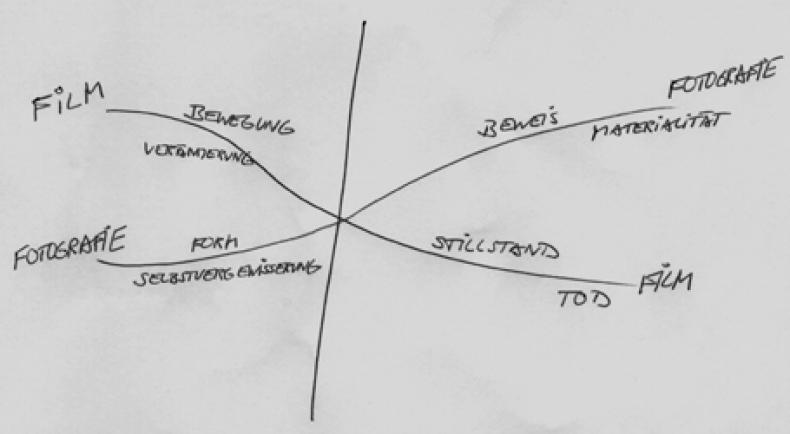 FiLM
BEWEGUNG
VERÄNDERUNG
FOTOGRAFIE
FORM
SELBSTVERGEWISSERUNG
FOTOGRAFIE
BEWEiS
MATERIALITÄT
STILLSTAND
FiLM
TOD